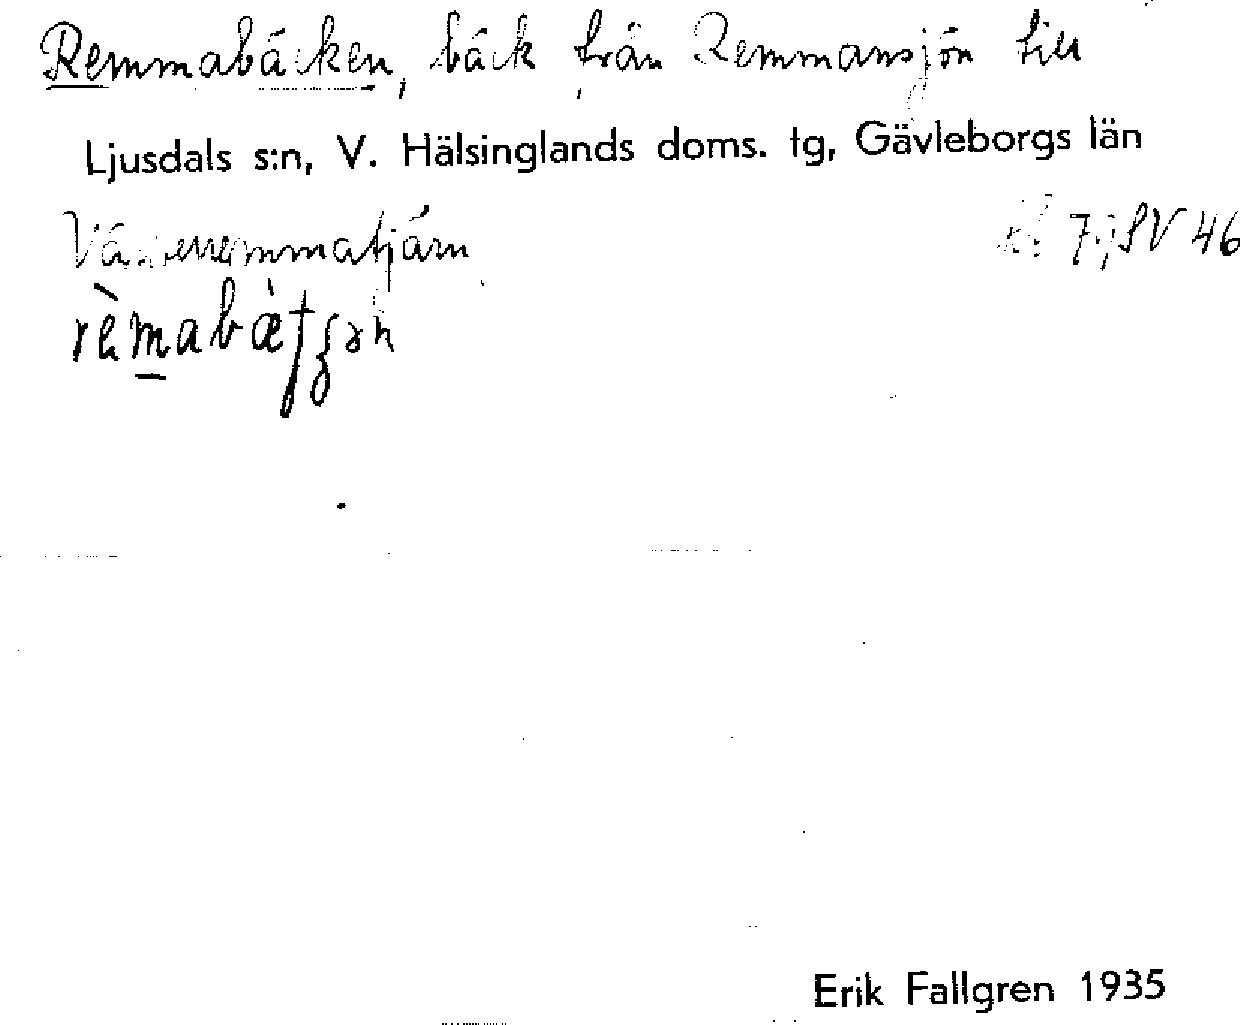 Remmabäcken, bäck från Remmansjön till
Ljusdals s:n, V. Hälsinglands doms. tg, Gävleborgs län
Västerremmatjärn
7 SV 46
Erik Fallgren 1935